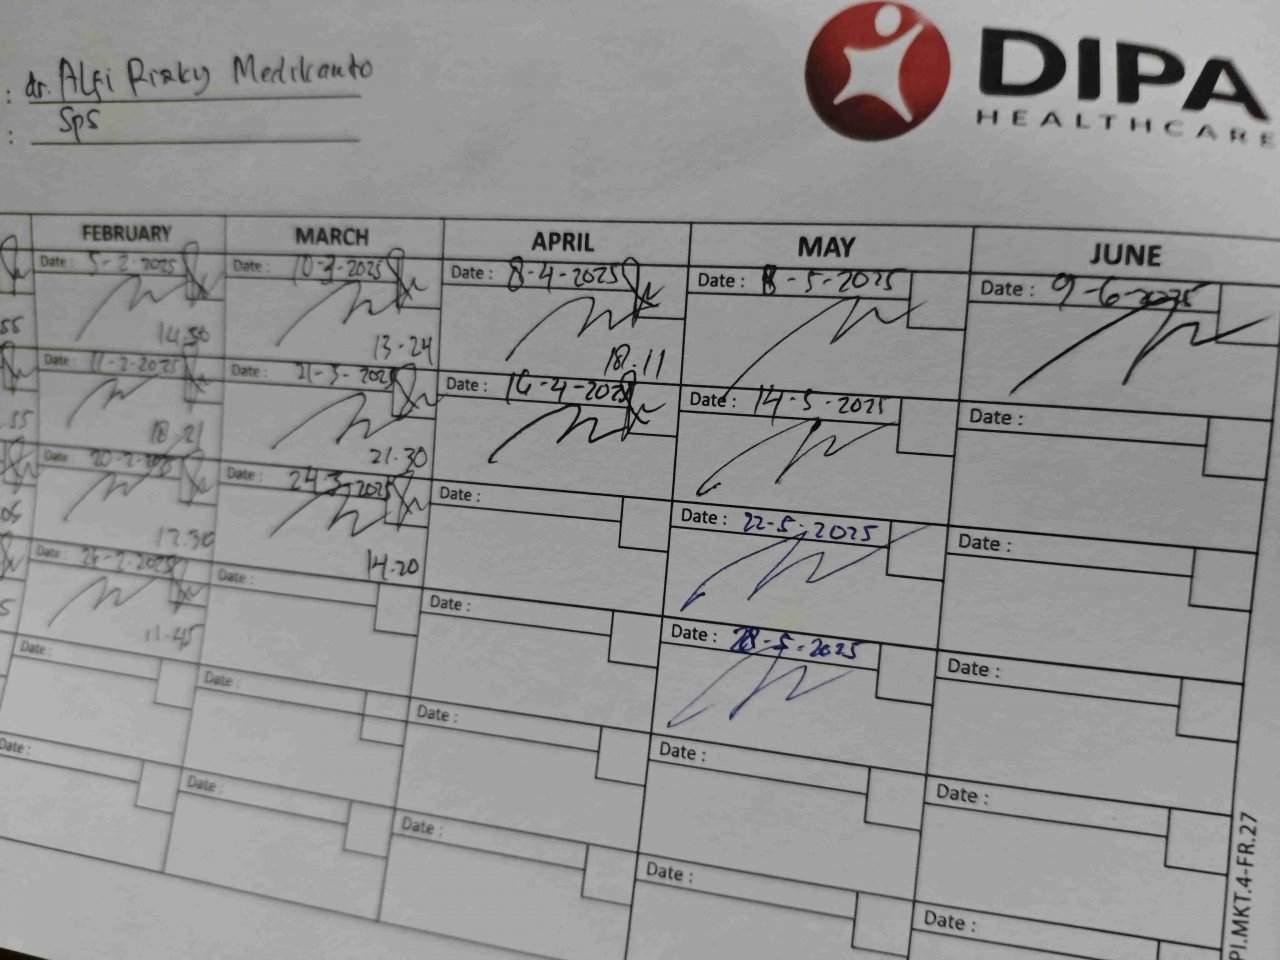 DIPA
HEALTHCARE
: dr. Alfi Rizky Medikanto
: Sps
FEBRUARY MARCH APRIL MAY JUNE
Date : 5-2-2025 Date : 10-3-2025 Date : 8-4-2025 Date : 8-5-2025 Date : 9-6-2025
55 14.30 13-24 18.11
Date : 11-2-2025 Date : 21-3-2025 Date : 16-4-2025 Date : 14-5-2025 Date :
.55 18.21 21.30
Date : 20-2-2025 Date : 24-3-2025 Date : Date : 22-5-2025 Date :
05 12.30 14.20
Date : 26-2-2025 Date : Date : Date : 28-5-2025 Date :
5 11-45
Date : Date : Date : Date : Date :
Date : Date : Date : Date : Date :
PI.MKT.4-FR.27